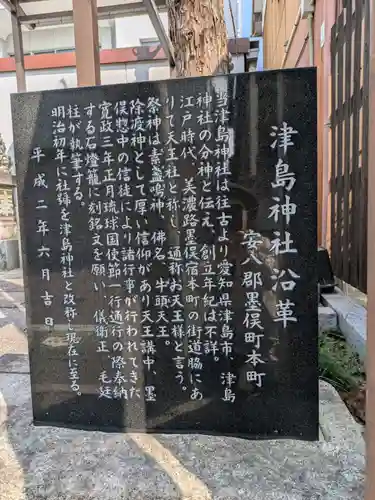 津島神社沿革
安八郡墨俣町本町
当津島神社は往古より愛知県津島市、津島
神社の分神と伝え、創立年紀は不詳。
江戸時代、美濃路墨俣宿本町の街道脇にあ
りて天王社と称し、通称お天王様と言う。
祭神は素盞鳴神、佛名、牛頭天王。
除疫神として厚い信仰があり天王講中、墨
俣惣中の信徒により諸行事が行われてきた
寛政三年正月琉球国使節一行通行の際奉納
する石燈籠に刻銘文を願い、儀衛正、毛廷
柱が執筆する。
明治初年に社号を津島神社と改称し現在に至る。
平成二年六月吉日